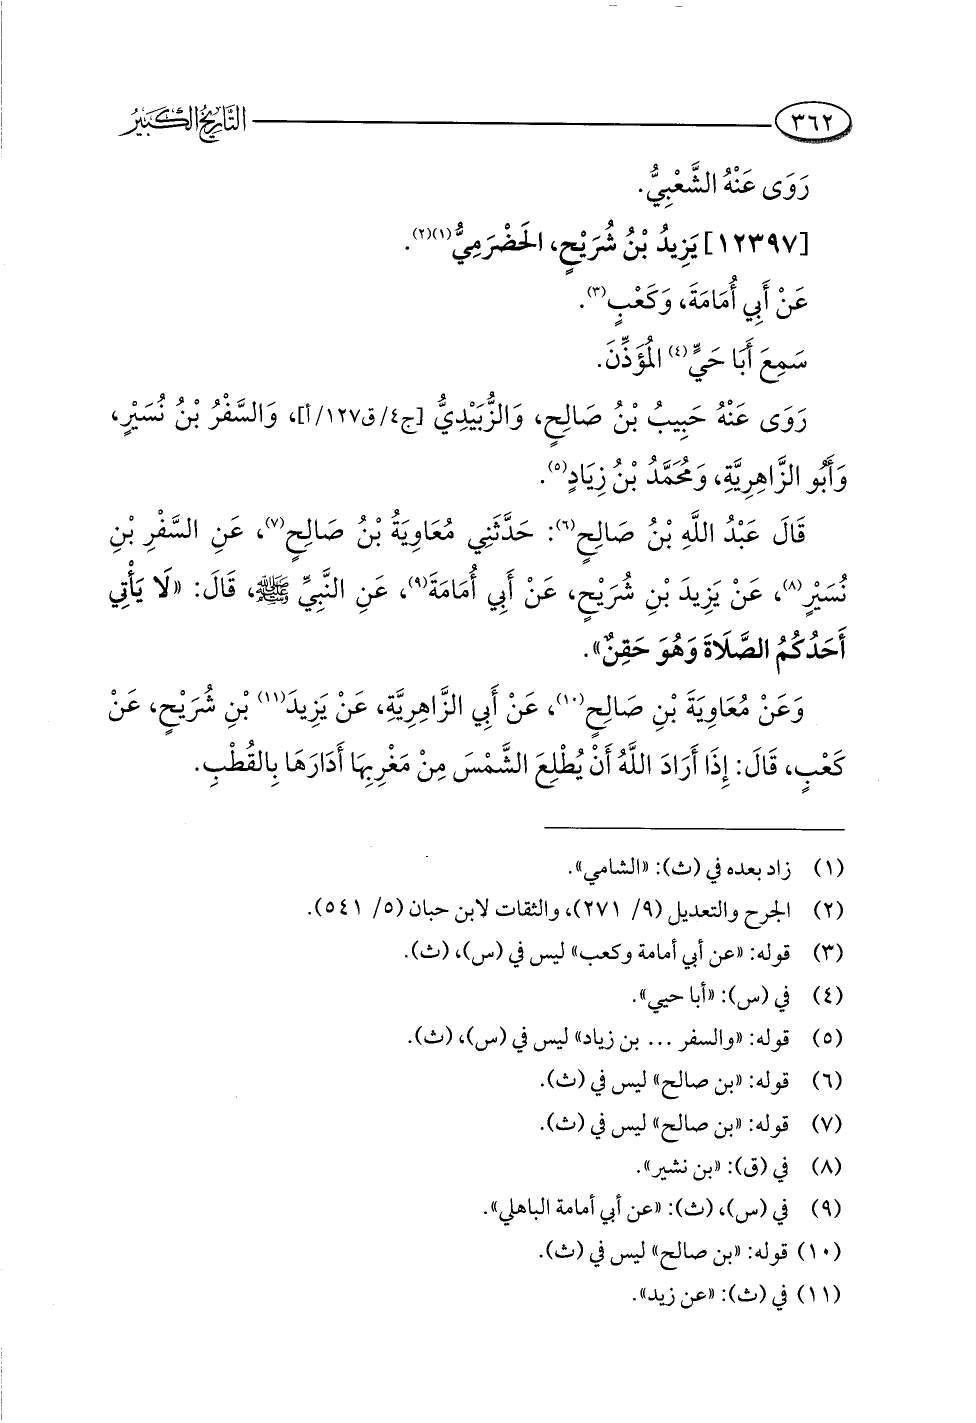 ٣٦٢ التاريخ الكبير
رَوَى عَنْهُ الشَّعْبِيُّ.
[١٢٣٩٧] يَزِيدُ بْنُ شُرَيْحٍ، الحَضْرَمِيُّ(١)(٢).
عَنْ أَبِي أُمَامَةَ، وَكَعْبٍ(٣).
سَمِعَ أَبَا حَيٍّ(٤) المُؤَذِّنَ.
رَوَى عَنْهُ حَبِيبُ بْنُ صَالِحٍ، وَالزُّبَيْدِيُّ [ج٤/ق١٢٧/أ]، وَالسَّفْرُ بْنُ نُسَيْرٍ،
وَأَبُو الزَّاهِرِيَّةِ، وَمُحَمَّدُ بْنُ زِيَادٍ(٥).
قَالَ عَبْدُ اللَّهِ بْنُ صَالِحٍ(٦): حَدَّثَنِي مُعَاوِيَةُ بْنُ صَالِحٍ(٧)، عَنِ السَّفْرِ بْنِ
نُسَيْرٍ(٨)، عَنْ يَزِيدَ بْنِ شُرَيْحٍ، عَنْ أَبِي أُمَامَةَ(٩)، عَنِ النَّبِيِّ ﷺ، قَالَ: «لَا يَأْتِي
أَحَدُكُمُ الصَّلَاةَ وَهُوَ حَقِنٌ».
وَعَنْ مُعَاوِيَةَ بْنِ صَالِحٍ(١٠)، عَنْ أَبِي الزَّاهِرِيَّةِ، عَنْ يَزِيدَ(١١) بْنِ شُرَيْحٍ، عَنْ
كَعْبٍ، قَالَ: إِذَا أَرَادَ اللَّهُ أَنْ يُطْلِعَ الشَّمْسَ مِنْ مَغْرِبِهَا أَدَارَهَا بِالقُطْبِ.
(١) زاد بعده في (ث): «الشامي».
(٢) الجرح والتعديل (٩/ ٢٧١)، والثقات لابن حبان (٥/ ٥٤١).
(٣) قوله: «عن أبي أمامة وكعب» ليس في (س)، (ث).
(٤) في (س): «أبا حيي».
(٥) قوله: «والسفر ... بن زياد» ليس في (س)، (ث).
(٦) قوله: «بن صالح» ليس في (ث).
(٧) قوله: «بن صالح» ليس في (ث).
(٨) في (ق): «بن نشير».
(٩) في (س)، (ث): «عن أبي أمامة الباهلي».
(١٠) قوله: «بن صالح» ليس في (ث).
(١١) في (ث): «عن زيد».